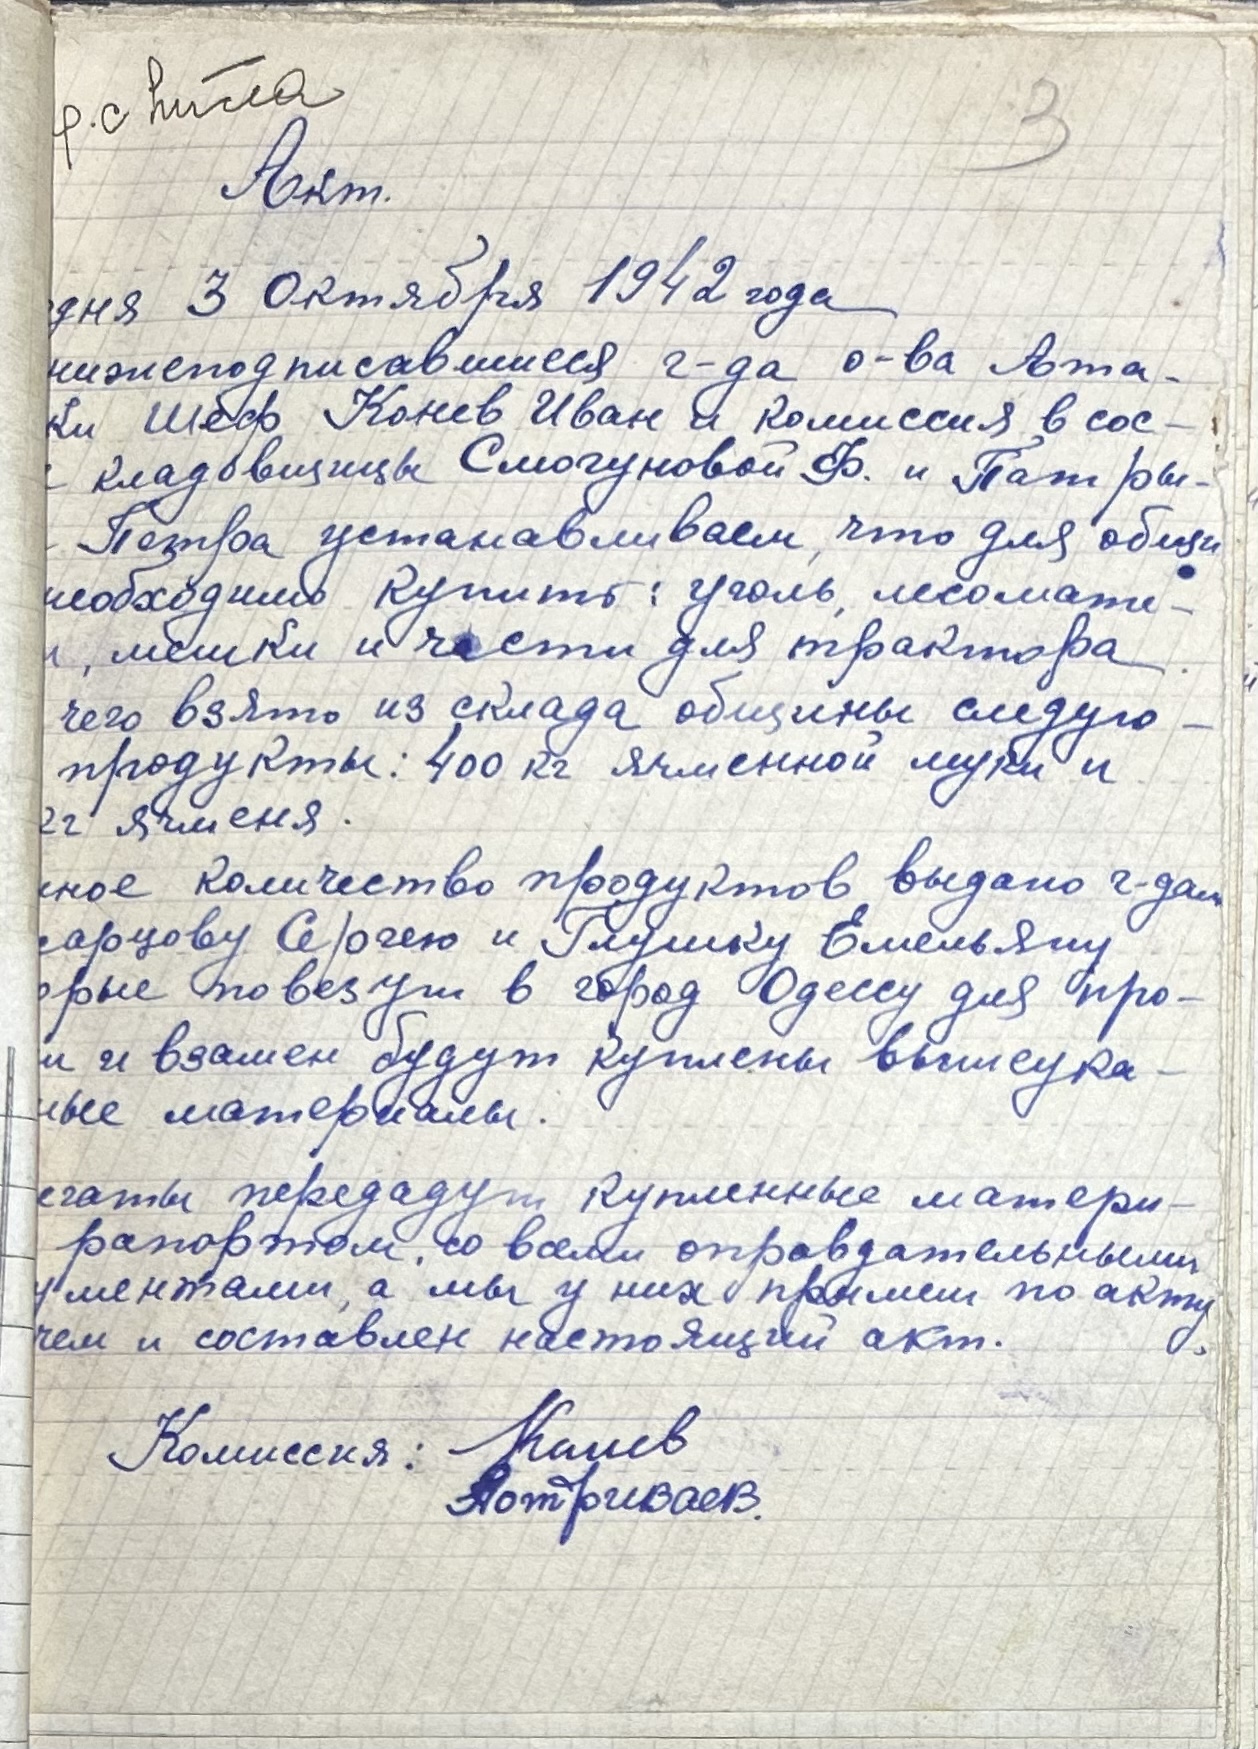 3
Акт.
дня 3 Октября 1942 года
нижеподписавшиеся г-да о-ва Ата-
ки Шеф Конев Иван и комиссия в сос-
кладовщицы Смогуновой Ф. и Патры-
Петра устанавливаем, что для общи
необходимо купить: уголь, лесомате-
, мешки и части для трактора
чего взято из склада общины следую-
продукты: 400 кг ячменной муки и
кг ячменя.
нное количество продуктов выдано г-дам
царцову Сергею и Глушку Емельяну
орые повезут в город Одессу для про-
и и взамен будут куплены вышеука-
ные материалы.
егаты передадут купленные матери-
рапортом, со всеми оправдательными
ументами, а мы у них примем по акту,
чем и составлен настоящий акт.
Комиссия: Конев